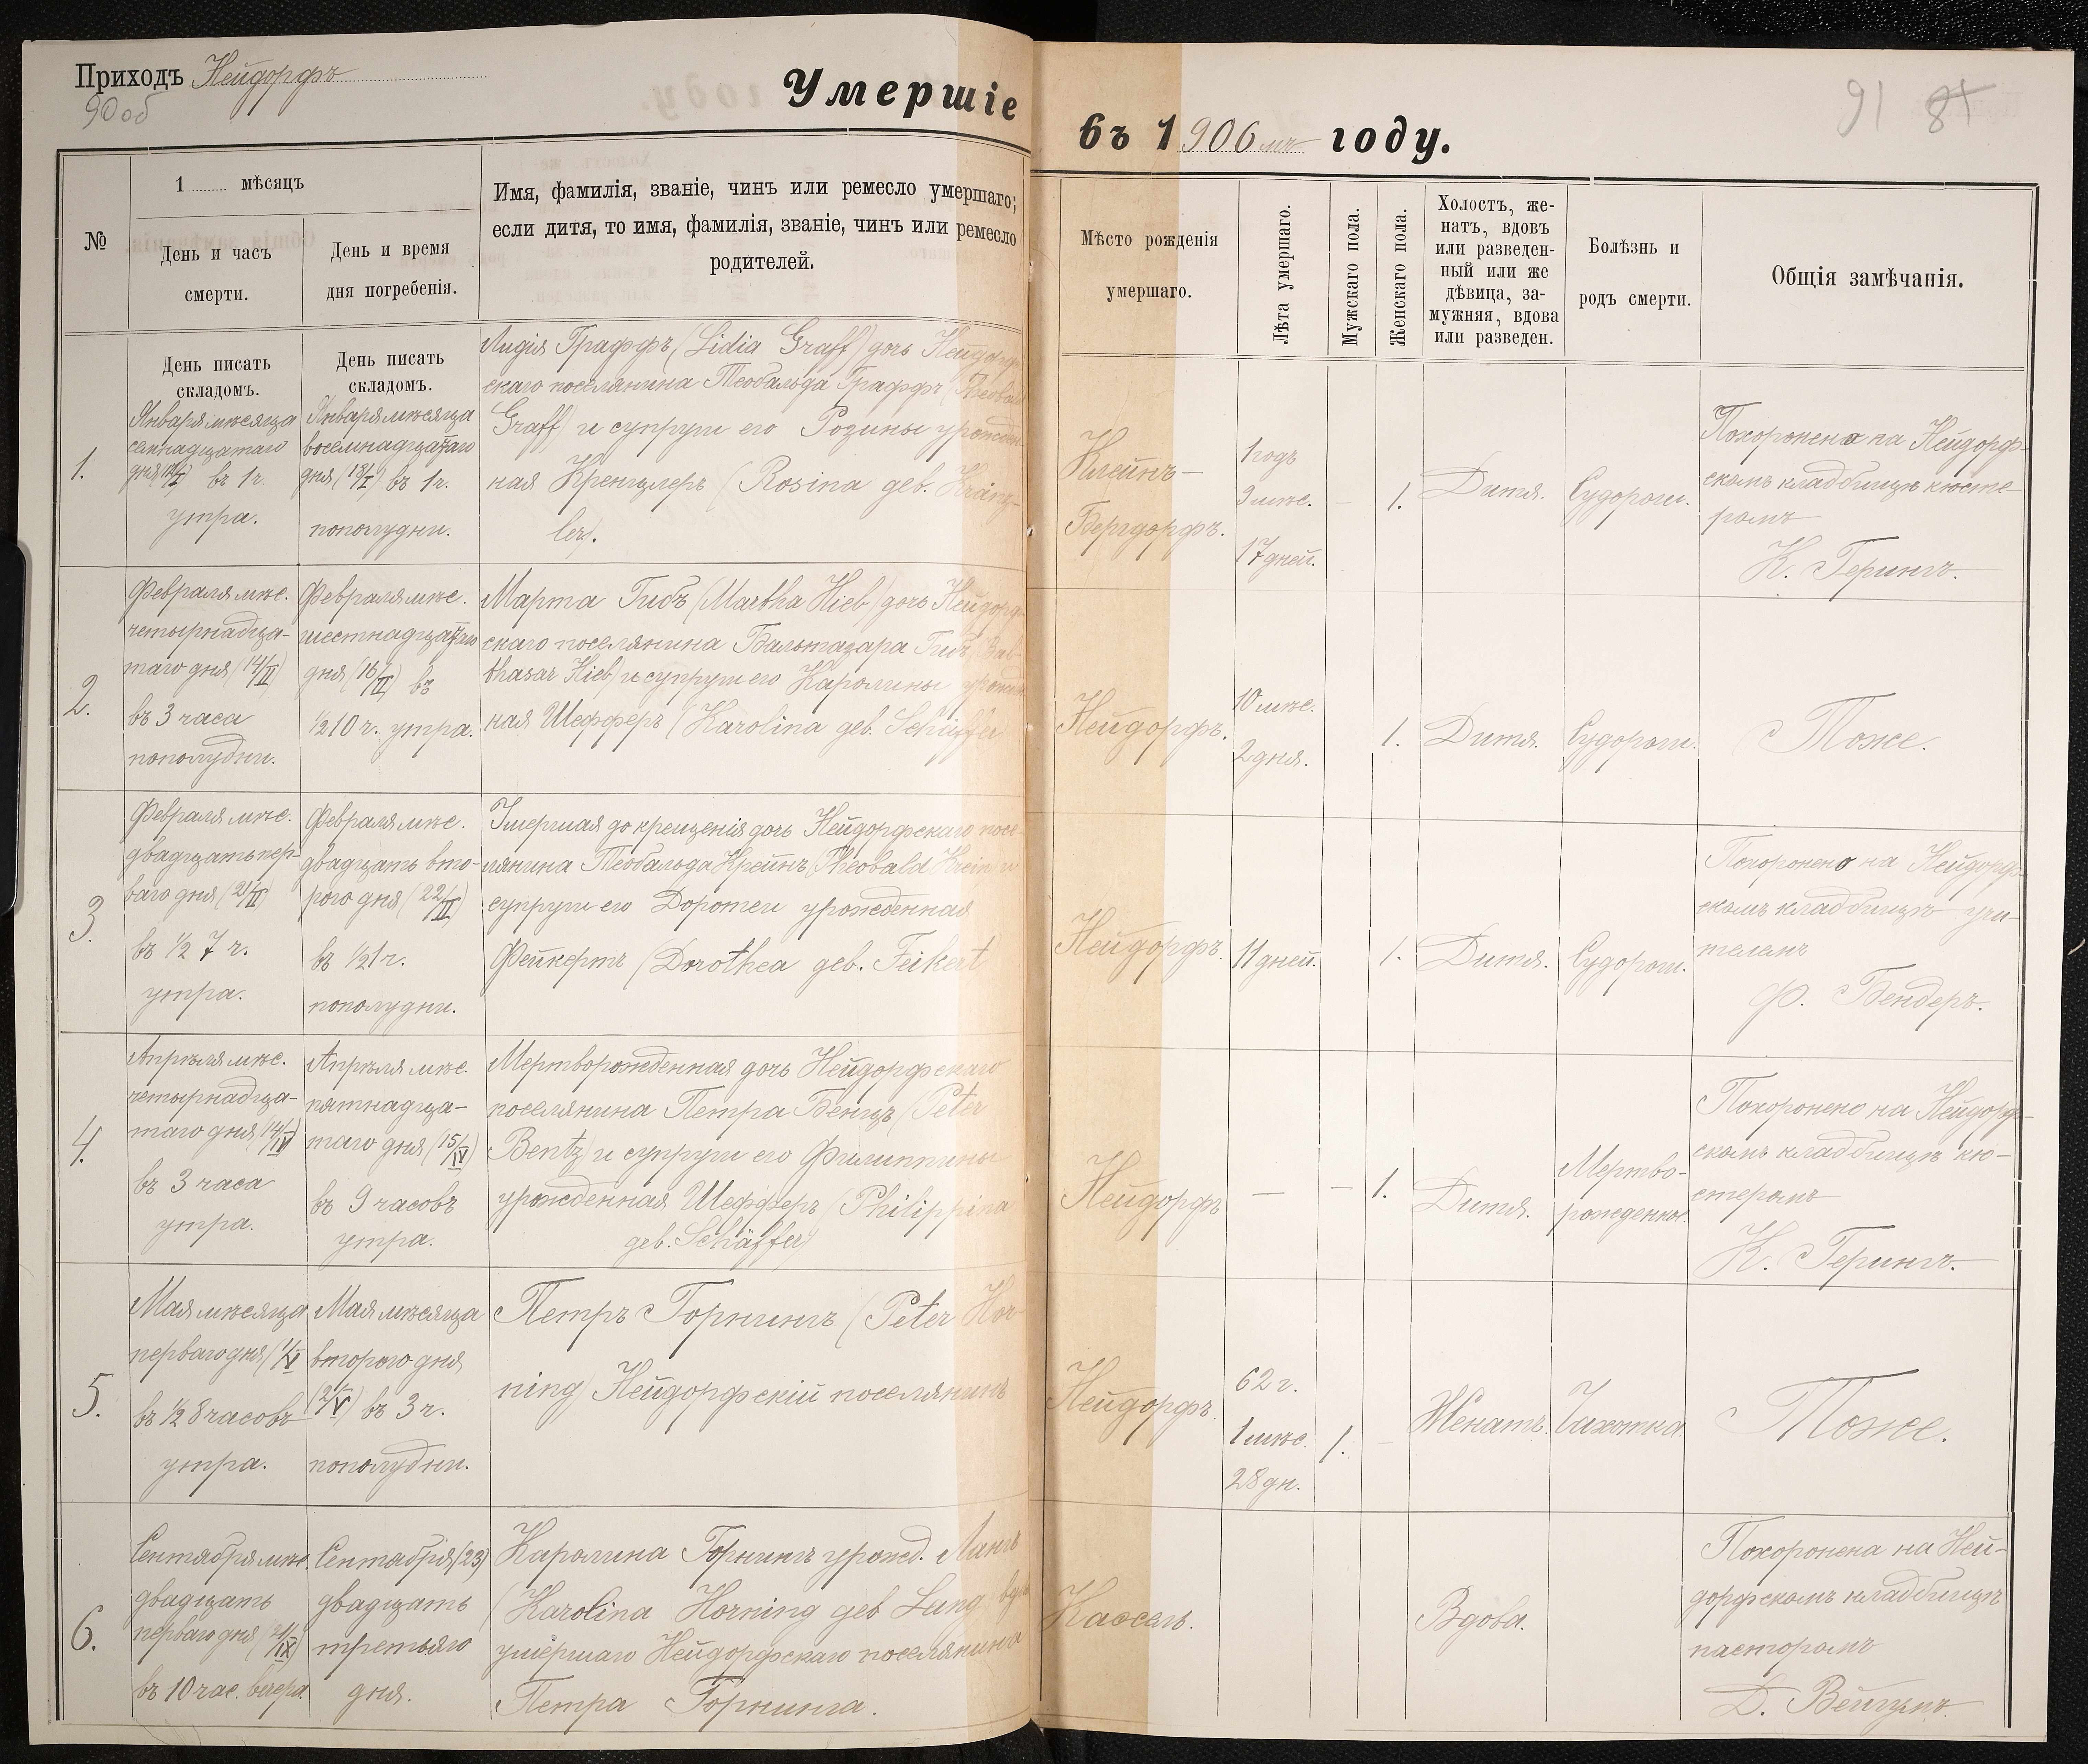 Приходъ Нейдорфъ
90 об
Умершіе
въ 1906мъ году.
91 87
№
1 мѣсяцъ
День и часъ
смерти.
День и время
дня погребенія.
Имя, фамилія, званіе, чинъ или ремесло умершаго;
если дитя, то имя, фамилія, званіе, чинъ или ремесло
родителей.
Мѣсто рожденія
умершаго.
Лѣта умершаго.
Мужскаго пола.
Женскаго пола.
Холостъ, же-
натъ, вдовъ
или разведен-
ный или же
дѣвица, за-
мужняя, вдова
или разведен.
Болѣзнь и
родъ смерти.
Общія замѣчанія.
День писать
складомъ.
День писать
складомъ.
1.
Января мѣсяца
семнадцатаго
дня (17/I) въ 1ч.
утра.
Января мѣсяца
восемнадцатаго
дня (18/I) въ 1ч.
пополудни.
Лидія Граффъ (Lidia Graff) дочь Нейдорф-
скаго поселянина Теобальда Граффъ (Theobald
Graff) и супруги его Розины урожден-
ная Кренцлеръ (Rosina geb. Kränz-
ler).
Клейнъ-
Бергдорфъ.
1 годъ
9 мѣс.
17 дней.
–
1.
Дитя.
Судороги.
Похоронена на Нейдорф-
скомъ кладбищѣ кюсте-
ромъ
К. Герингъ.
2.
Февраля мѣс.
четырнадца-
таго дня (14/II)
въ 3 часа
пополудни.
Февраля мѣс.
шестнадцатаго
дня (16/II) въ
1/2 10 ч. утра.
Марта Гибъ (Martha Hieb) дочь Нейдорф-
скаго поселянина Бальтазара Гибъ (Bal-
thasar Hieb) и супруги его Каролины урожден-
ная Шефферъ (Karolina geb. Schäffer
Нейдорфъ.
10 мѣс.
2 дня.
1.
Дитя.
Судороги.
Тоже.
3.
Февраля мѣс.
двадцать пер-
ваго дня (21/II)
въ 1/2 7 ч.
утра.
Февраля мѣс.
двадцать вто-
рого дня (22/II)
въ 1/2 1 ч.
пополудни.
Умершая до крещенія дочь Нейдорфскаго посе-
лянина Теобальда Крейнъ (Theobald Krein) и
супруги его Доротеи урожденная
Фейкертъ (Dorothea geb. Feikert
Нейдорфъ.
11 дней.
1.
Дитя.
Судороги.
Похоронено на Нейдорф-
скомъ кладбищѣ учи-
телемъ
Ф. Бендеръ.
4.
Апрѣля мѣс.
четырнадца-
таго дня (14/IV)
въ 3 часа
утра.
Апрѣля мѣс.
пятнадца-
таго дня (15/IV)
въ 9 часовъ
утра.
Мертворожденная дочь Нейдорфскаго
поселянина Петра Бенцъ (Peter
Bentz) и супруги его Филиппины
урожденная Шефферъ (Philippina
geb. Schäffer)
Нейдорфъ
–
–
1.
Дитя.
Мертво-
рожденное.
Похоронено на Нейдорф-
скомъ кладбищѣ кю-
стеромъ
К. Герингъ.
5.
Мая мѣсяца
перваго дня (1/V)
въ 1/2 8 часовъ
утра.
Мая мѣсяца
второго дня
(2/V) въ 3 ч.
пополудни.
Петръ Горнингъ (Peter Hor-
ning) Нейдорфскій поселянинъ
Нейдорфъ.
62 г.
1 мѣс.
28 дн.
1.
–
Женатъ.
Чахотка.
Тоже.
6.
Сентября мѣс.
двадцать
перваго дня (21/IX)
въ 10 час. вечера.
Сентября (23)
двадцать
третьяго
дня.
Каролина Горнингъ урожд. Лангъ
(Karolina Horning geb Lang)
умершаго Нейдорфскаго поселянина
Петра Горнинга.
Кассель.
Вдова.
Похоронена на Ней-
дорфскомъ кладбищѣ
пасторомъ